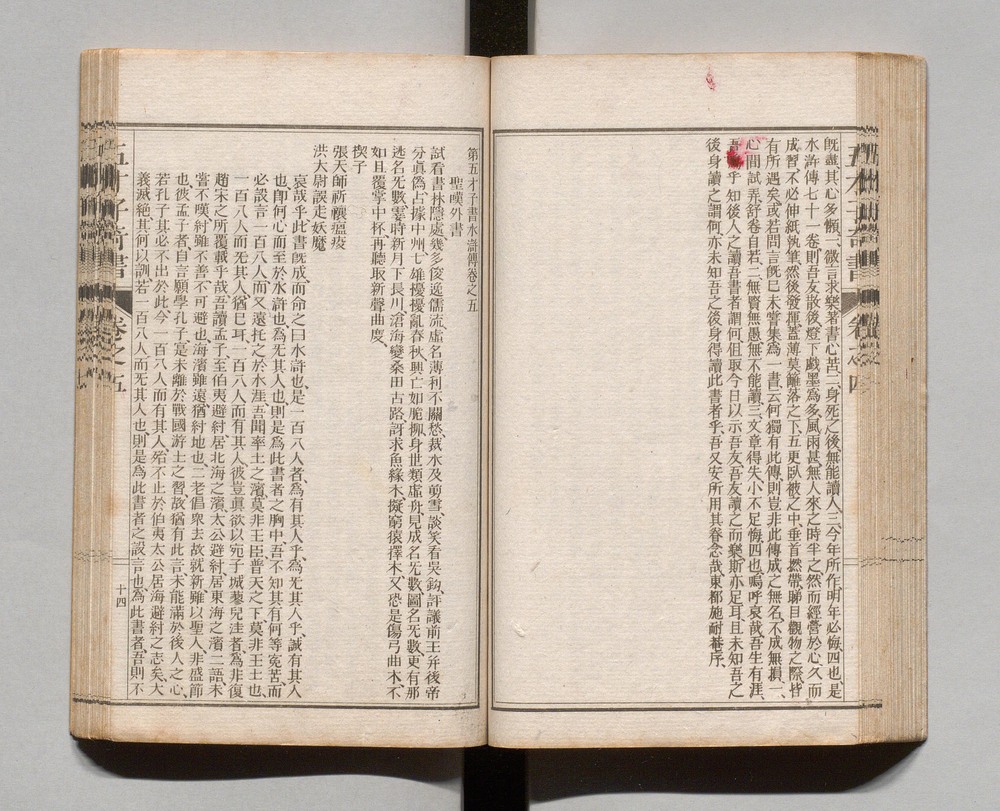 既盡其心多懶一微言求樂著書心苦二身死之後無能讀人三今年所作明年必悔四也是
水滸傳七十一卷則吾友散後燈下戲墨為多風雨甚無人來之時半之然而經營於心久而
成習不必伸紙執筆然後發揮蓋薄莫籬落之下五更臥被之中垂首撚帶睇目觀物之際皆
有所遇矣或若問言既已未嘗集為一書云何獨有此傳則豈非此傳成之無名不成無損一
心閒試弄舒卷自若二無賢無愚無不能讀三文章得失小不足悔四也嗚呼哀哉吾生有涯
吾嗚乎知後人之讀吾書者謂何但取今日以示吾友吾友讀之而樂斯亦足耳且未知吾之
後身讀之謂何亦未知吾之後身得讀此書者乎吾又安所用其眷念哉東都施耐菴序
卷之四
第五才子書水滸傳卷之五
聖嘆外書
試看書林隱處幾多俊逸儒流虛名薄利不關愁裁氷及剪雪談笑看吳鈎評議前王并後帝
分真偽占據中州七雄擾擾亂春秋興亡如脆柳身世類虛舟見成名无數圖名无數更有那
逃名无數霎時新月下長川滄海變桑田古路訝求魚緣木擬窮猿擇木又恐是傷弓曲木不
如且覆掌中杯再聽取新聲曲度
楔子
張天師祈禳瘟疫
洪太尉誤走妖魔
哀哉乎此書既成而命之曰水滸也是一百八人者為有其人乎為无其人乎誠有其人
也即何心而至於水滸也為无其人也則是為此書者之胸中吾不知其有何等冤苦而
必設言一百八人而又遠托之於水涯吾聞率土之濱莫非王臣普天之下莫非王土也
一百八人而无其人猶已耳一百八人而有其人彼豈真欲以宛子城蓼兒洼者為非復
趙宋之所覆載乎哉吾讀孟子至伯夷避紂居北海之濱太公避紂居東海之濱二語未
嘗不嘆紂雖不善不可避也海濱雖遠猶紂地也二老倡衆去故就新雖以聖人非盛節
也彼孟子者自言願學孔子是未離於戰國游士之習故猶有此言未能滿於後人之心
若孔子其必不出於此今一百八人而有其人殆不止於伯夷太公居海避紂之志矣大
義滅絕其何以訓若一百八人而无其人也則是為此書者之設言也為此書者吾則不
十四
五才子奇書
卷之五